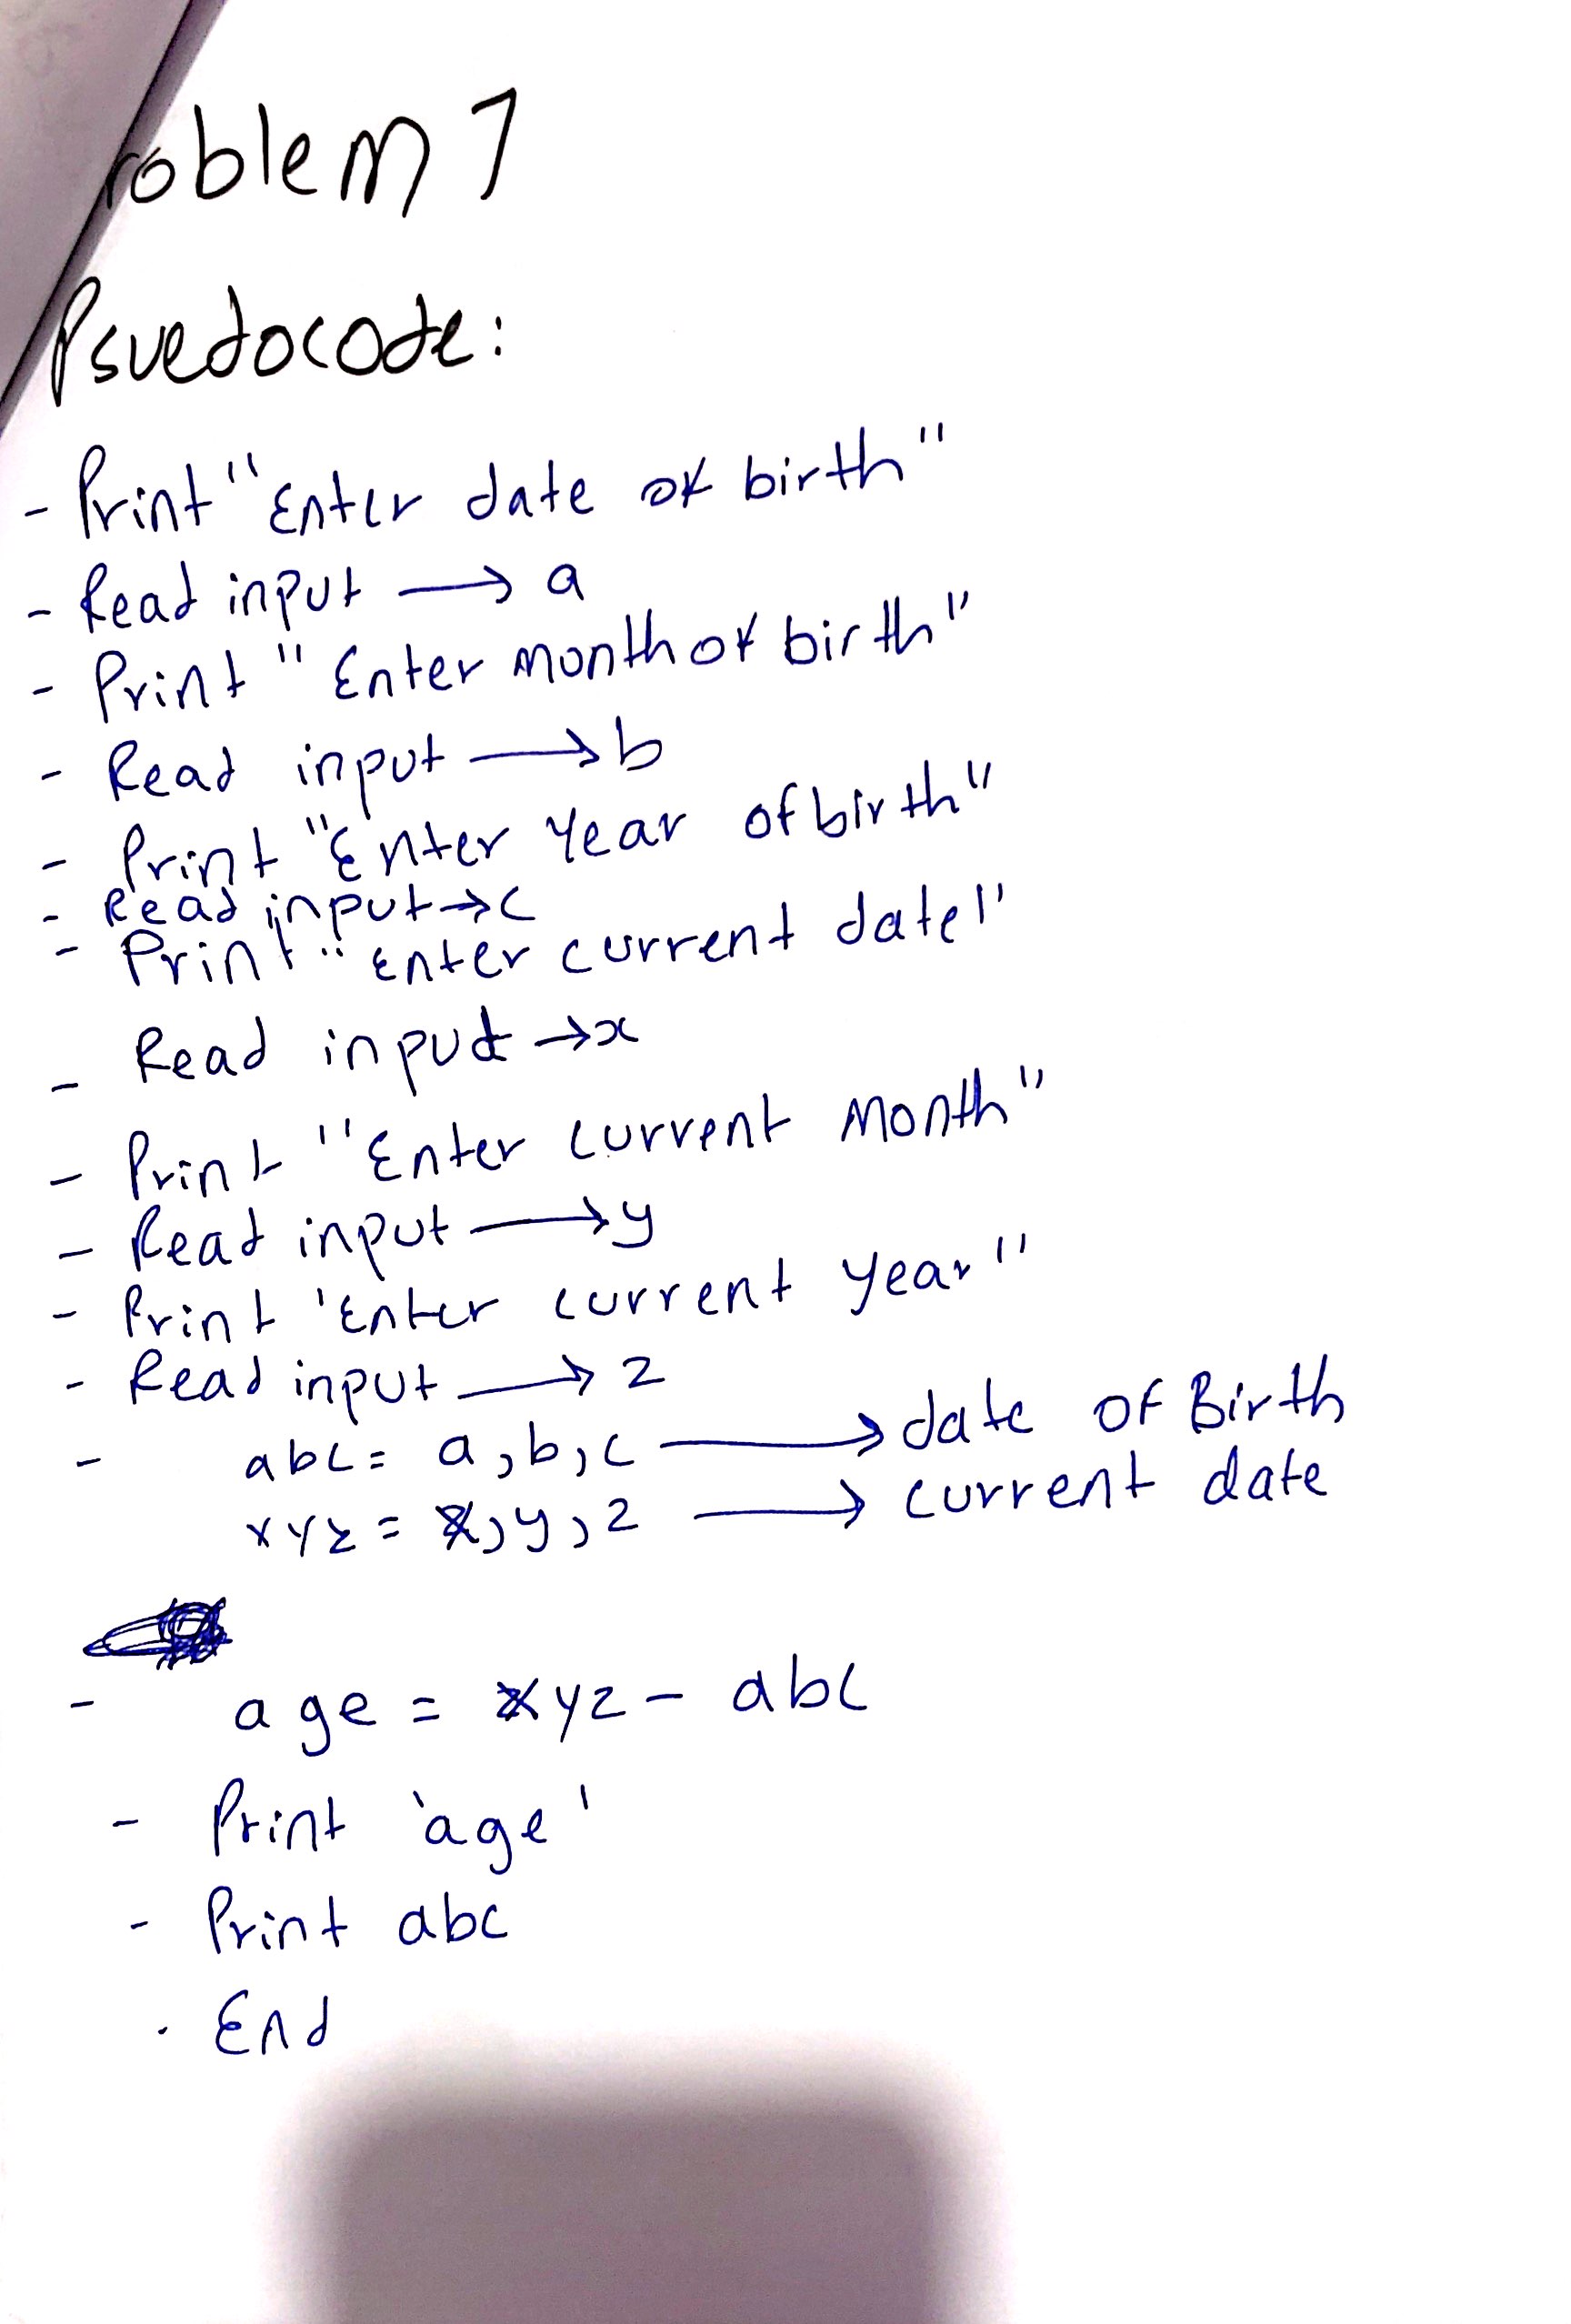 roblem 7
Psuedocode:
- Print "Enter date of birth"
- Read input → a
- Print "Enter month of birth"
- Read input → b
- Print "Enter Year of birth"
- Read input → c
- Print "Enter current date"
- Read input → x
- Print "Enter current Month"
- Read input → y
- Print 'Enter current year"
- Read input → z
- abc = a, b, c → date of Birth
xyz = x, y, z → current date
- age = xyz - abc
- Print 'age'
- Print abc
. End